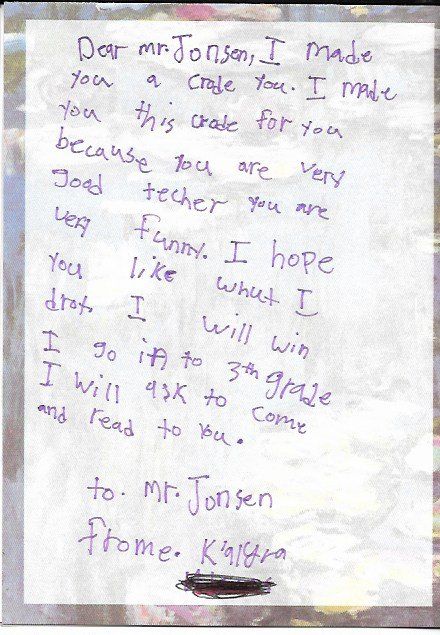 Dear mr. Jonsen, I made
you a crade you. I made
you this crade for you
because you are very
good techer you are
very funny. I hope
you like whut I
drot. I will win
I go in to 3th grade
I will ask to come
and read to you.
to. mr. Jonsen
frome.